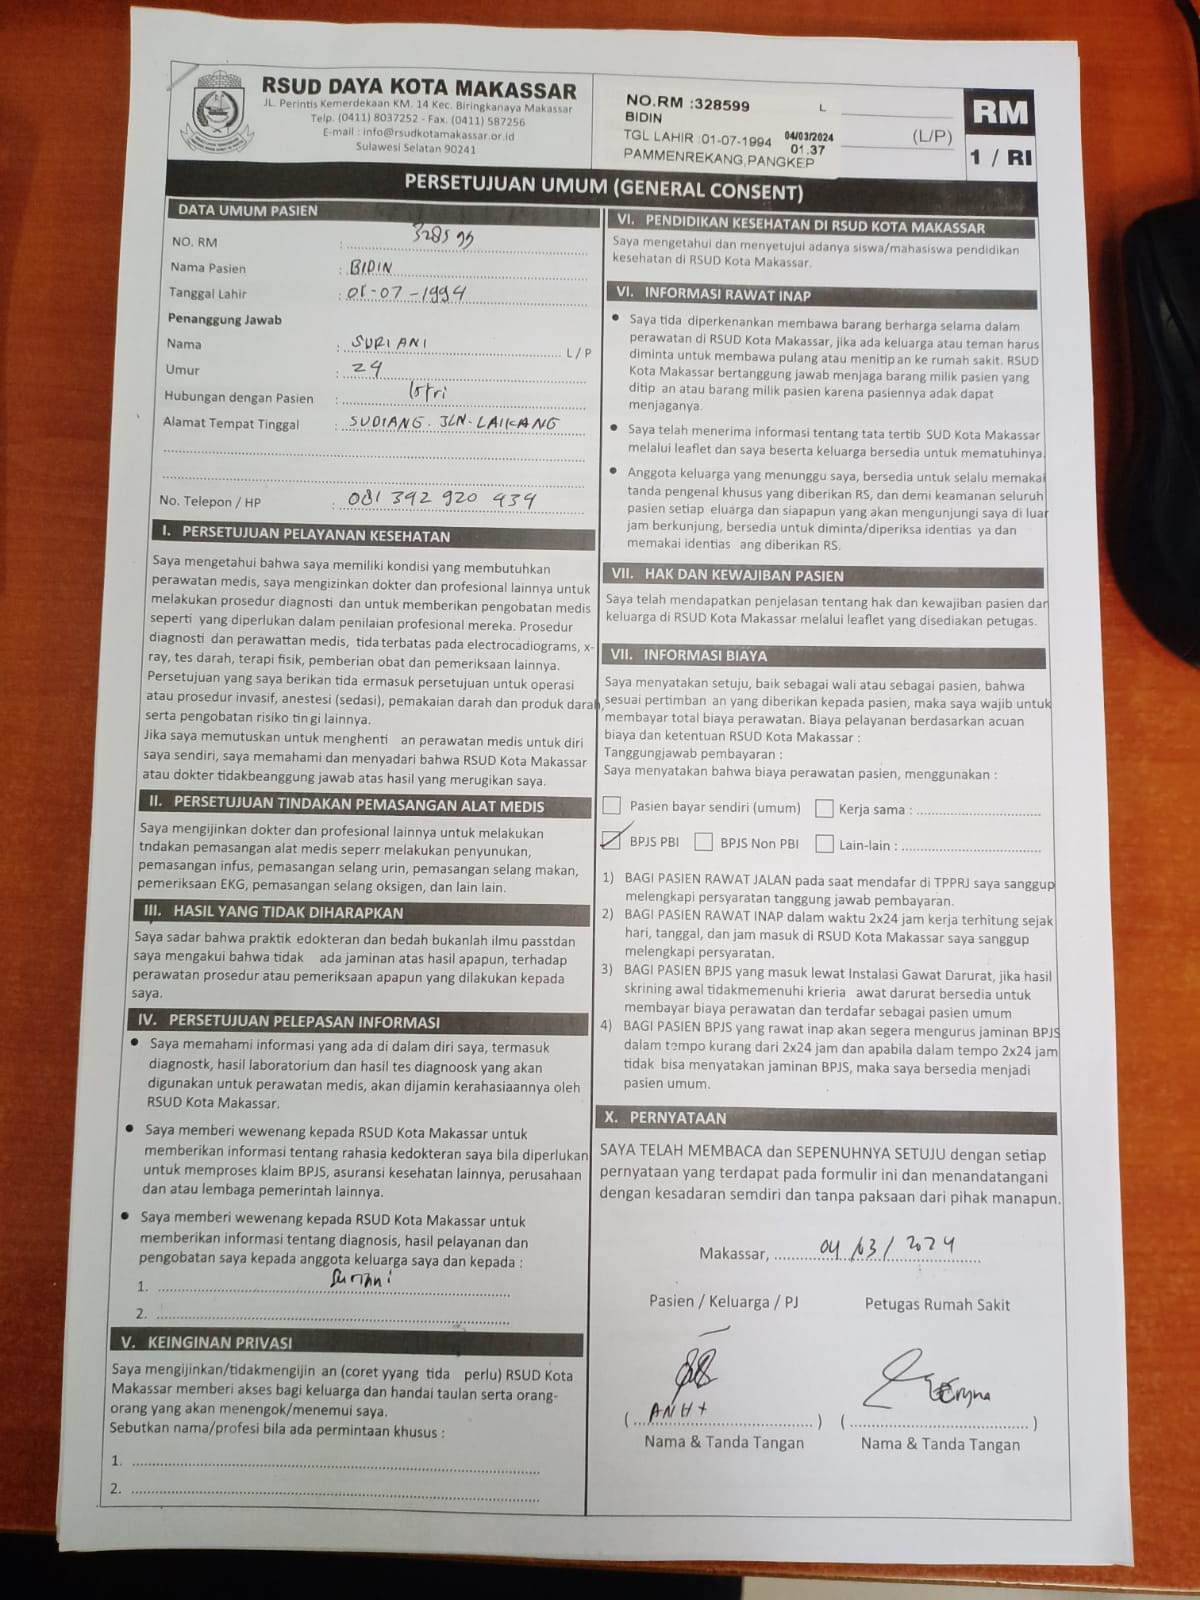 RSUD DAYA KOTA MAKASSAR
JL. Perintis Kemerdekaan KM. 14 Kec. Biringkanaya Makassar
Telp. (0411) 8037252 - Fax. (0411) 587256
E-mail : info@rsudkotamakassar.or.id
Sulawesi Selatan 90241
NO.RM :328599 L
BIDIN
TGL LAHIR :01-07-1994 04/03/2024 01.37
PAMMENREKANG,PANGKEP
(L/P)
RM
1 / RI
PERSETUJUAN UMUM (GENERAL CONSENT)
DATA UMUM PASIEN
NO. RM : 328599
Nama Pasien : BIDIN
Tanggal Lahir : 01-07-1994
Penanggung Jawab
Nama : SURIANI L / P
Umur : 24
Hubungan dengan Pasien : Istri
Alamat Tempat Tinggal : SUDIANG. JLN. LAIKANG
No. Telepon / HP : 081 392 920 939
I. PERSETUJUAN PELAYANAN KESEHATAN
Saya mengetahui bahwa saya memiliki kondisi yang membutuhkan
perawatan medis, saya mengizinkan dokter dan profesional lainnya untuk
melakukan prosedur diagnosti dan untuk memberikan pengobatan medis
seperti yang diperlukan dalam penilaian profesional mereka. Prosedur
diagnosti dan perawattan medis, tida terbatas pada electrocadiograms, x-
ray, tes darah, terapi fisik, pemberian obat dan pemeriksaan lainnya.
Persetujuan yang saya berikan tida ermasuk persetujuan untuk operasi
atau prosedur invasif, anestesi (sedasi), pemakaian darah dan produk darah,
serta pengobatan risiko tin gi lainnya.
Jika saya memutuskan untuk menghenti an perawatan medis untuk diri
saya sendiri, saya memahami dan menyadari bahwa RSUD Kota Makassar
atau dokter tidakbeanggung jawab atas hasil yang merugikan saya.
II. PERSETUJUAN TINDAKAN PEMASANGAN ALAT MEDIS
Saya mengijinkan dokter dan profesional lainnya untuk melakukan
tndakan pemasangan alat medis seperr melakukan penyunukan,
pemasangan infus, pemasangan selang urin, pemasangan selang makan,
pemeriksaan EKG, pemasangan selang oksigen, dan lain lain.
III. HASIL YANG TIDAK DIHARAPKAN
Saya sadar bahwa praktik edokteran dan bedah bukanlah ilmu passtdan
saya mengakui bahwa tidak ada jaminan atas hasil apapun, terhadap
perawatan prosedur atau pemeriksaan apapun yang dilakukan kepada
saya.
IV. PERSETUJUAN PELEPASAN INFORMASI
• Saya memahami informasi yang ada di dalam diri saya, termasuk
diagnostk, hasil laboratorium dan hasil tes diagnoosk yang akan
digunakan untuk perawatan medis, akan dijamin kerahasiaannya oleh
RSUD Kota Makassar.
• Saya memberi wewenang kepada RSUD Kota Makassar untuk
memberikan informasi tentang rahasia kedokteran saya bila diperlukan
untuk memproses klaim BPJS, asuransi kesehatan lainnya, perusahaan
dan atau lembaga pemerintah lainnya.
• Saya memberi wewenang kepada RSUD Kota Makassar untuk
memberikan informasi tentang diagnosis, hasil pelayanan dan
pengobatan saya kepada anggota keluarga saya dan kepada :
1. Suriani
2.
V. KEINGINAN PRIVASI
Saya mengijinkan/tidakmengijin an (coret yyang tida perlu) RSUD Kota
Makassar memberi akses bagi keluarga dan handai taulan serta orang-
orang yang akan menengok/menemui saya.
Sebutkan nama/profesi bila ada permintaan khusus :
1.
2.
VI. PENDIDIKAN KESEHATAN DI RSUD KOTA MAKASSAR
Saya mengetahui dan menyetujui adanya siswa/mahasiswa pendidikan
kesehatan di RSUD Kota Makassar.
VI. INFORMASI RAWAT INAP
• Saya tida diperkenankan membawa barang berharga selama dalam
perawatan di RSUD Kota Makassar, jika ada keluarga atau teman harus
diminta untuk membawa pulang atau menitip an ke rumah sakit. RSUD
Kota Makassar bertanggung jawab menjaga barang milik pasien yang
ditip an atau barang milik pasien karena pasiennya adak dapat
menjaganya.
• Saya telah menerima informasi tentang tata tertib SUD Kota Makassar
melalui leaflet dan saya beserta keluarga bersedia untuk mematuhinya.
• Anggota keluarga yang menunggu saya, bersedia untuk selalu memakai
tanda pengenal khusus yang diberikan RS, dan demi keamanan seluruh
pasien setiap eluarga dan siapapun yang akan mengunjungi saya di luar
jam berkunjung, bersedia untuk diminta/diperiksa identias ya dan
memakai identias ang diberikan RS.
VII. HAK DAN KEWAJIBAN PASIEN
Saya telah mendapatkan penjelasan tentang hak dan kewajiban pasien dan
keluarga di RSUD Kota Makassar melalui leaflet yang disediakan petugas.
VII. INFORMASI BIAYA
Saya menyatakan setuju, baik sebagai wali atau sebagai pasien, bahwa
sesuai pertimban an yang diberikan kepada pasien, maka saya wajib untuk
membayar total biaya perawatan. Biaya pelayanan berdasarkan acuan
biaya dan ketentuan RSUD Kota Makassar :
Tanggungjawab pembayaran :
Saya menyatakan bahwa biaya perawatan pasien, menggunakan :
Pasien bayar sendiri (umum) Kerja sama :
BPJS PBI BPJS Non PBI Lain-lain :
1) BAGI PASIEN RAWAT JALAN pada saat mendafar di TPPRJ saya sanggup
melengkapi persyaratan tanggung jawab pembayaran.
2) BAGI PASIEN RAWAT INAP dalam waktu 2x24 jam kerja terhitung sejak
hari, tanggal, dan jam masuk di RSUD Kota Makassar saya sanggup
melengkapi persyaratan.
3) BAGI PASIEN BPJS yang masuk lewat Instalasi Gawat Darurat, jika hasil
skrining awal tidakmemenuhi krieria awat darurat bersedia untuk
membayar biaya perawatan dan terdafar sebagai pasien umum
4) BAGI PASIEN BPJS yang rawat inap akan segera mengurus jaminan BPJS
dalam tempo kurang dari 2x24 jam dan apabila dalam tempo 2x24 jam
tidak bisa menyatakan jaminan BPJS, maka saya bersedia menjadi
pasien umum.
X. PERNYATAAN
SAYA TELAH MEMBACA dan SEPENUHNYA SETUJU dengan setiap
pernyataan yang terdapat pada formulir ini dan menandatangani
dengan kesadaran semdiri dan tanpa paksaan dari pihak manapun.
Makassar, 04/03/2024
Pasien / Keluarga / PJ Petugas Rumah Sakit
Nama & Tanda Tangan Nama & Tanda Tangan